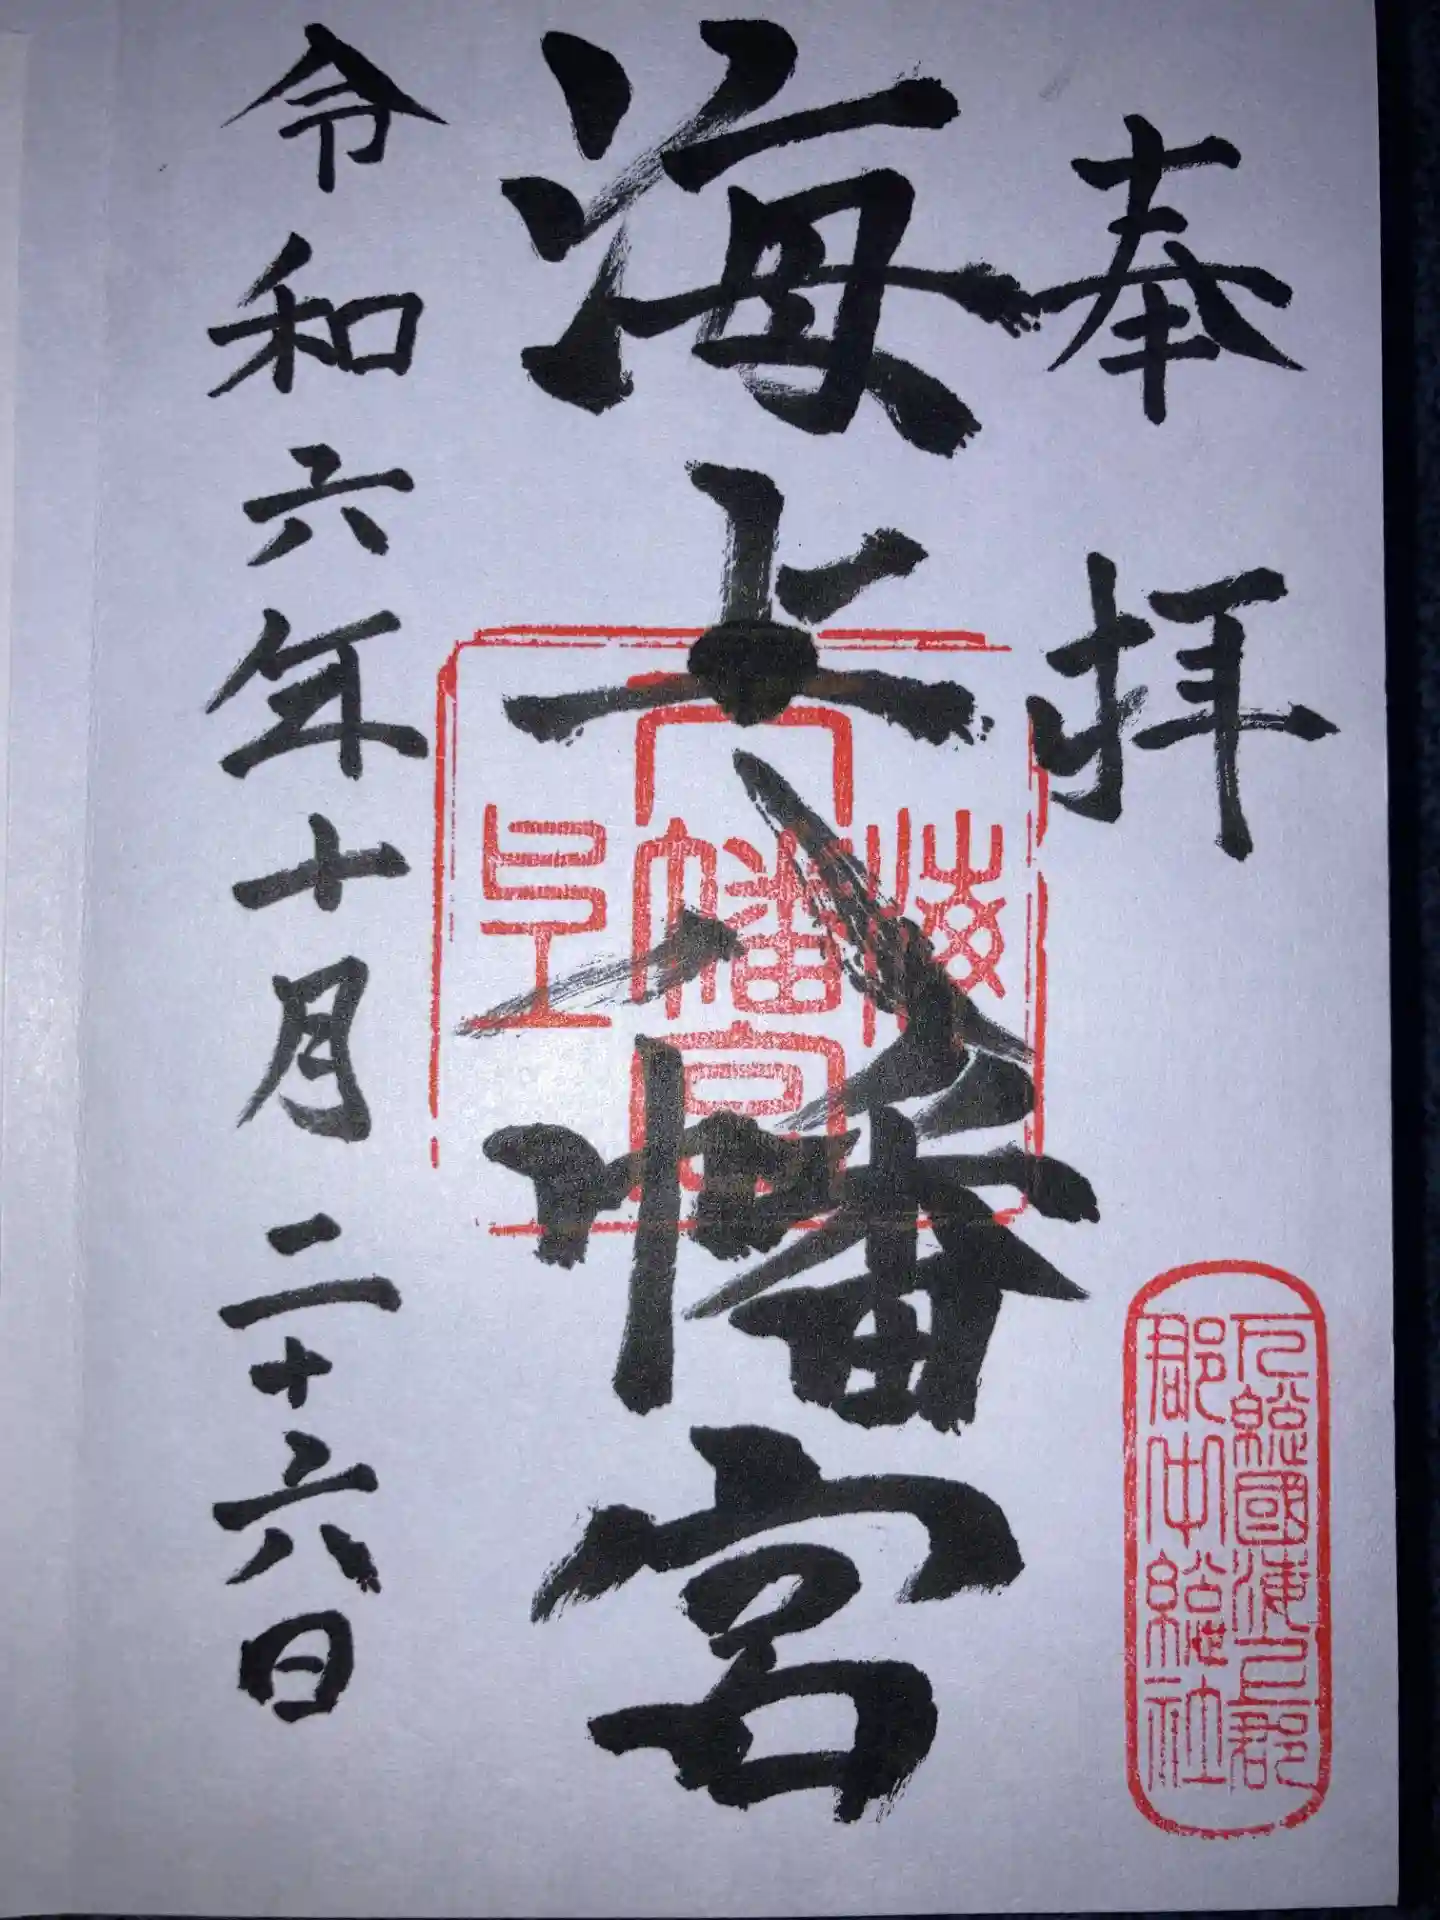 奉拝
下総國海上郡
郡中総社
海上八幡宮
海上八幡宮印
令和六年十月二十六日